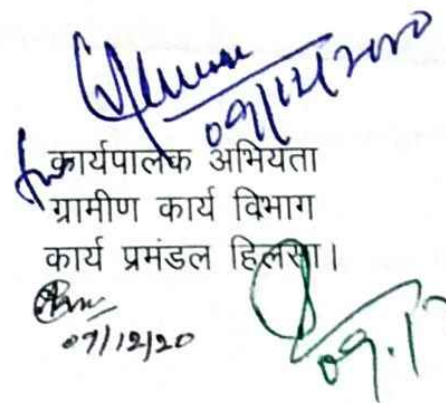 09/12/2020
कार्यपालक अभियता
ग्रामीण कार्य विभाग
कार्य प्रमंडल हिलसा।
07/12/20
09.1